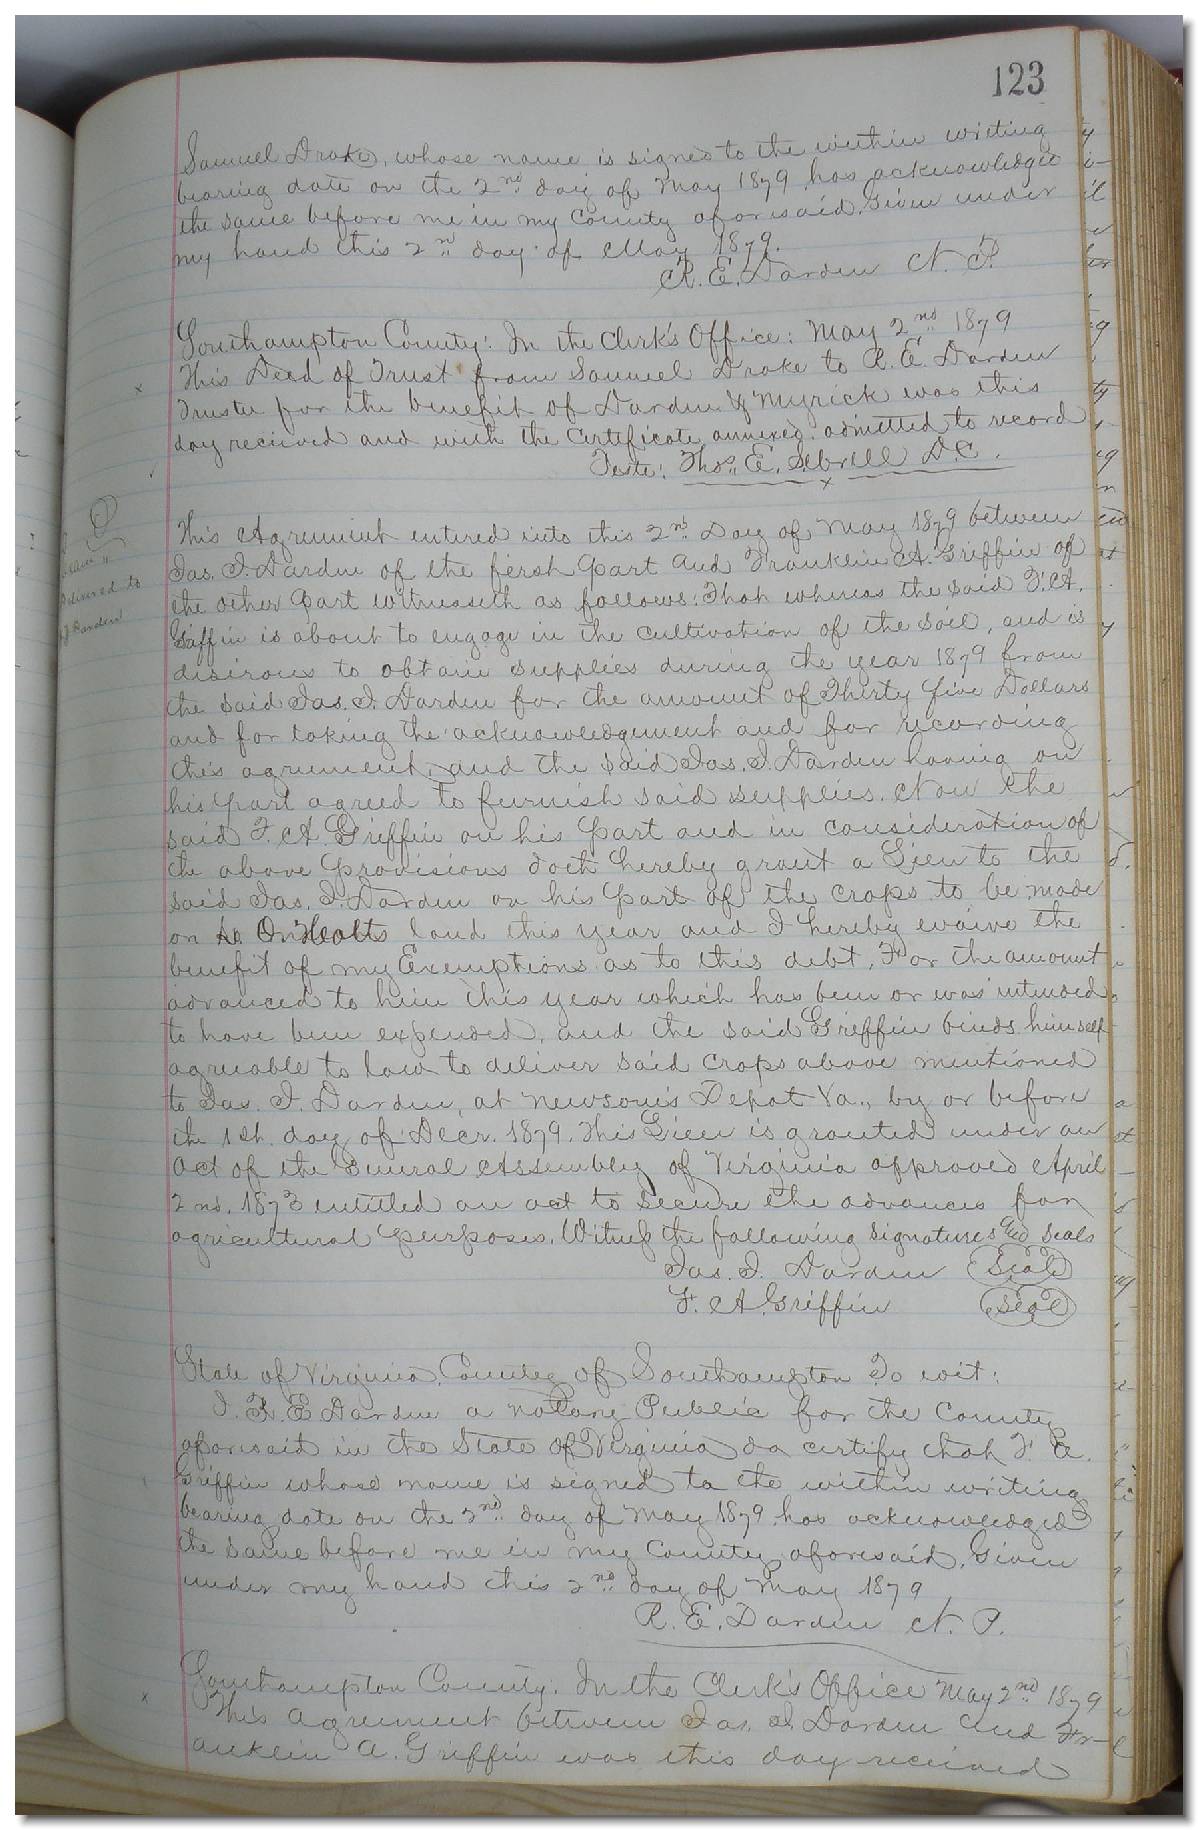 123
Samuel Drake, whose name is signed to the within writing
bearing date on the 2nd day of May 1879 has acknowledged
the same before me in my County aforesaid. Given under
my hand this 2nd day of May 1879.
R. E. Darden N. P.
Southampton County: In the Clerk's Office: May 2nd 1879
This Deed of Trust from Samuel Drake to R. E. Darden
Trustee for the benefit of Darden & Myrick was this
day received and with the Certificate annexed admitted to record
Teste: Thos. E. Sebrell D.C.
This Agreement entered into this 2nd Day of May 1879 between
Jas. J. Darden of the first Part and Franklin A. Griffin of
the other Part witnesseth as follows: That whereas the said F. A.
Griffin is about to engage in the cultivation of the soil, and is
desirous to obtain supplies during the year 1879 from
the said Jas. J. Darden for the amount of Thirty five Dollars
and for taking the acknowledgement and for recording
this agreement, and the said Jas. J. Darden having on
his part agreed to furnish said supplies. Now the
said F. A. Griffin on his part and in consideration of
the above provisions doth hereby grant a Lien to the
said Jas. J. Darden on his part of the crops to be made
on land this year and I hereby waive the
benefit of my Exemptions as to this debt, For the amount
advanced to him this year which has been or was intended
to have been expended, and the said Griffin binds himself
agreeable to law to deliver said crops above mentioned
to Jas. J. Darden, at Newsom's Depot Va., by or before
the 1st day of Decr. 1879. This Lien is granted under an
act of the General Assembly of Virginia approved April
2nd, 1873 entitled an act to secure the advances for
agricultural purposes. Witness the following signatures and seals
Jas. J. Darden Seal
F. A. Griffin Seal
delivered to
J J Darden
State of Virginia, County of Southampton To wit:
I. R. E. Darden a notary Public for the County
aforesaid in the State of Virginia do certify that F. A.
Griffin whose name is signed to the within writing
bearing date on the 2nd day of May 1879 has acknowledged
the same before me in my County aforesaid, Given
under my hand this 2nd day of May 1879
R. E. Darden N. P.
Southampton County: In the Clerk's Office May 2nd 1879
This Agreement between Jas. J. Darden and Fr-
anklin A. Griffin was this day received